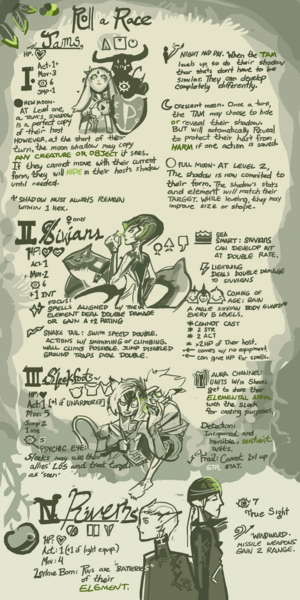 Roll a Race
I Tams,
HP:
Act: 1
Mov: 3
6
Jmp: 1
New Moon:
At level one,
a Tam's shadow
is a perfect copy
of their host
However, at the start of their
turn, the moon shadow may copy
any creature or object it sees.
If they cannot move with their current
form, they will hide in their hosts shadow
until needed.
* Shadow must always remain
within 1 hex.
Night and Day. When the Tam
levels up, so do their shadow
their stats don't have to be
similar. They can develop
completely differently.
Crescent Moon: Once a turn,
the Tam may choose to hide
or reveal their shadow.
But will automatically reveal
to protect their host from
harm if one action is saved.
Full Moon: At level 2,
the shadow is now connected to
their form. The shadow's stats
and element will match their
target, while leveling, they may
improve size or shape.
II Sivians
and/or
HP:
Act: 1
Mov: 2
6
+1 INT
Focus:
Spells aligned w/ their
element deal double damage
or gain a +2 rating
Snake Tail: Swim speed double.
Actions w/ swimming or climbing.
Wall climb possible. Jump disabled
Ground traps deal double.
Sea
Smart: Sivians
can develop INT
at double rate.
Lightning
deals double damage
to Sivians
Coming of
Age: Gain
a male sivian body guard*
every 5 levels.
* Cannot cast
* 2 STR
* 2 ACT
* ½ HP of their host.
comes w/ no equipment
can give HP for spells.
III Sleekfoots~
HP:
Act: 1 (+1 if unarmored)
Mov: 5
Jump 2
Line
5
Psychic Eye:
Sleeks may use their
allies' LOS and treat target
as 'seen'
Aura Channel:
Units w/in 3 hexes
get to share their
elemental affin.
with the sleek
for casting purposes,
Detection:
Incognito and
invisible, sentient
units.
Frail: Cannot lvl up
STR stat.
IV Riverens
HP:
Act: 2 (+1 if light equip.)
Mov: 4
Leyline Born: Rivs are "batteries"
of their
element.
7
True Sight
Windward:
Missile weapons
gain 2 range.